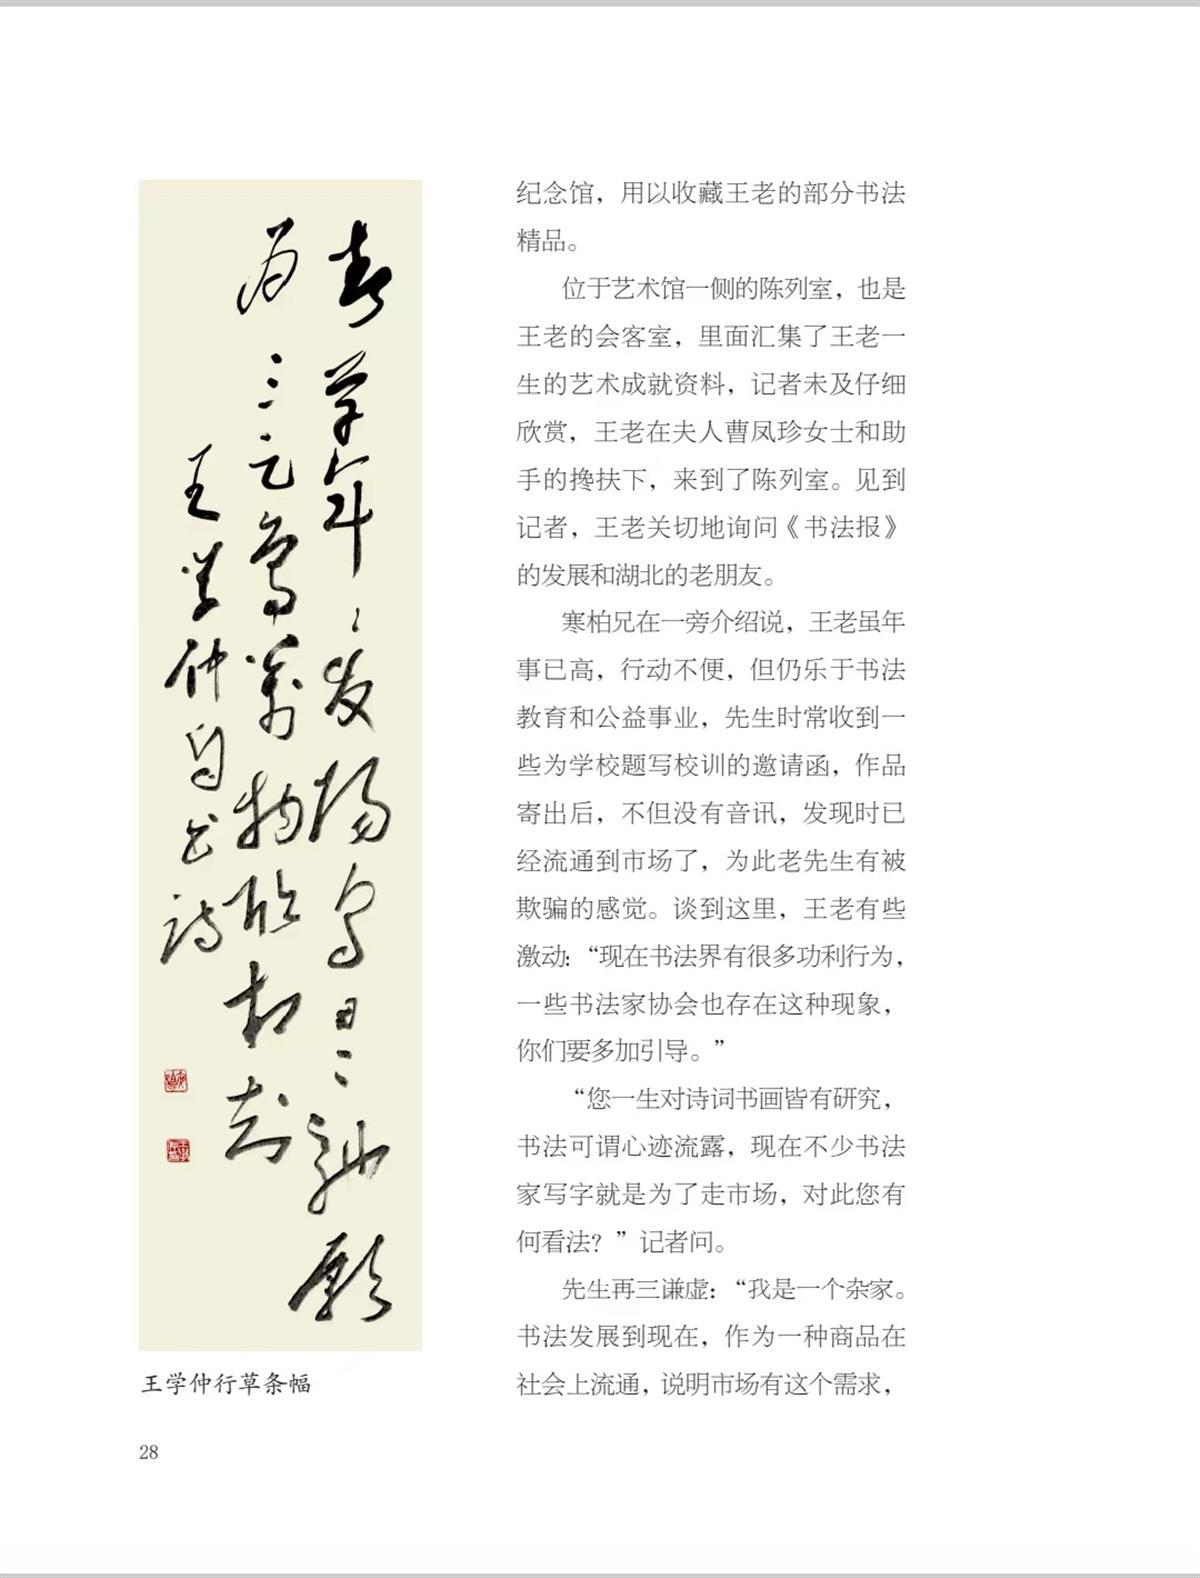 春草年々发
愿
为三
万物欣相
王学仲自书诗
王学仲行草条幅
纪念馆，用以收藏王老的部分书法
精品。
位于艺术馆一侧的陈列室，也是
王老的会客室，里面汇集了王老一
生的艺术成就资料，记者未及仔细
欣赏，王老在夫人曹凤珍女士和助
手的搀扶下，来到了陈列室。见到
记者，王老关切地询问《书法报》
的发展和湖北的老朋友。
寒柏兄在一旁介绍说，王老虽年
事已高，行动不便，但仍乐于书法
教育和公益事业，先生时常收到一
些为学校题写校训的邀请函，作品
寄出后，不但没有音讯，发现时已
经流通到市场了，为此老先生有被
欺骗的感觉。谈到这里，王老有些
激动：“现在书法界有很多功利行为，
一些书法家协会也存在这种现象，
你们要多加引导。”
“您一生对诗词书画皆有研究，
书法可谓心迹流露，现在不少书法
家写字就是为了走市场，对此您有
何看法？”记者问。
先生再三谦虚：“我是一个杂家。
书法发展到现在，作为一种商品在
社会上流通，说明市场有这个需求，
28